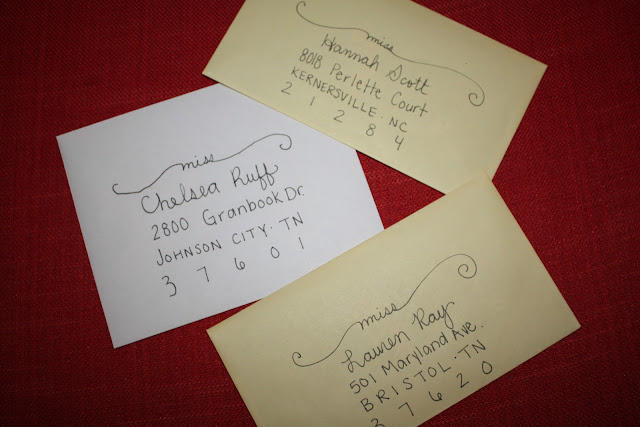 miss
Hannah Scott
8018 Perlette Court
KERNERSVILLE · NC
2 1 2 8 4
miss
Chelsea Ruff
2800 Granbook Dr.
JOHNSON CITY · TN
3 7 6 0 1
miss
Lauren Ray
501 Maryland Ave.
BRISTOL · TN
3 7 6 2 0